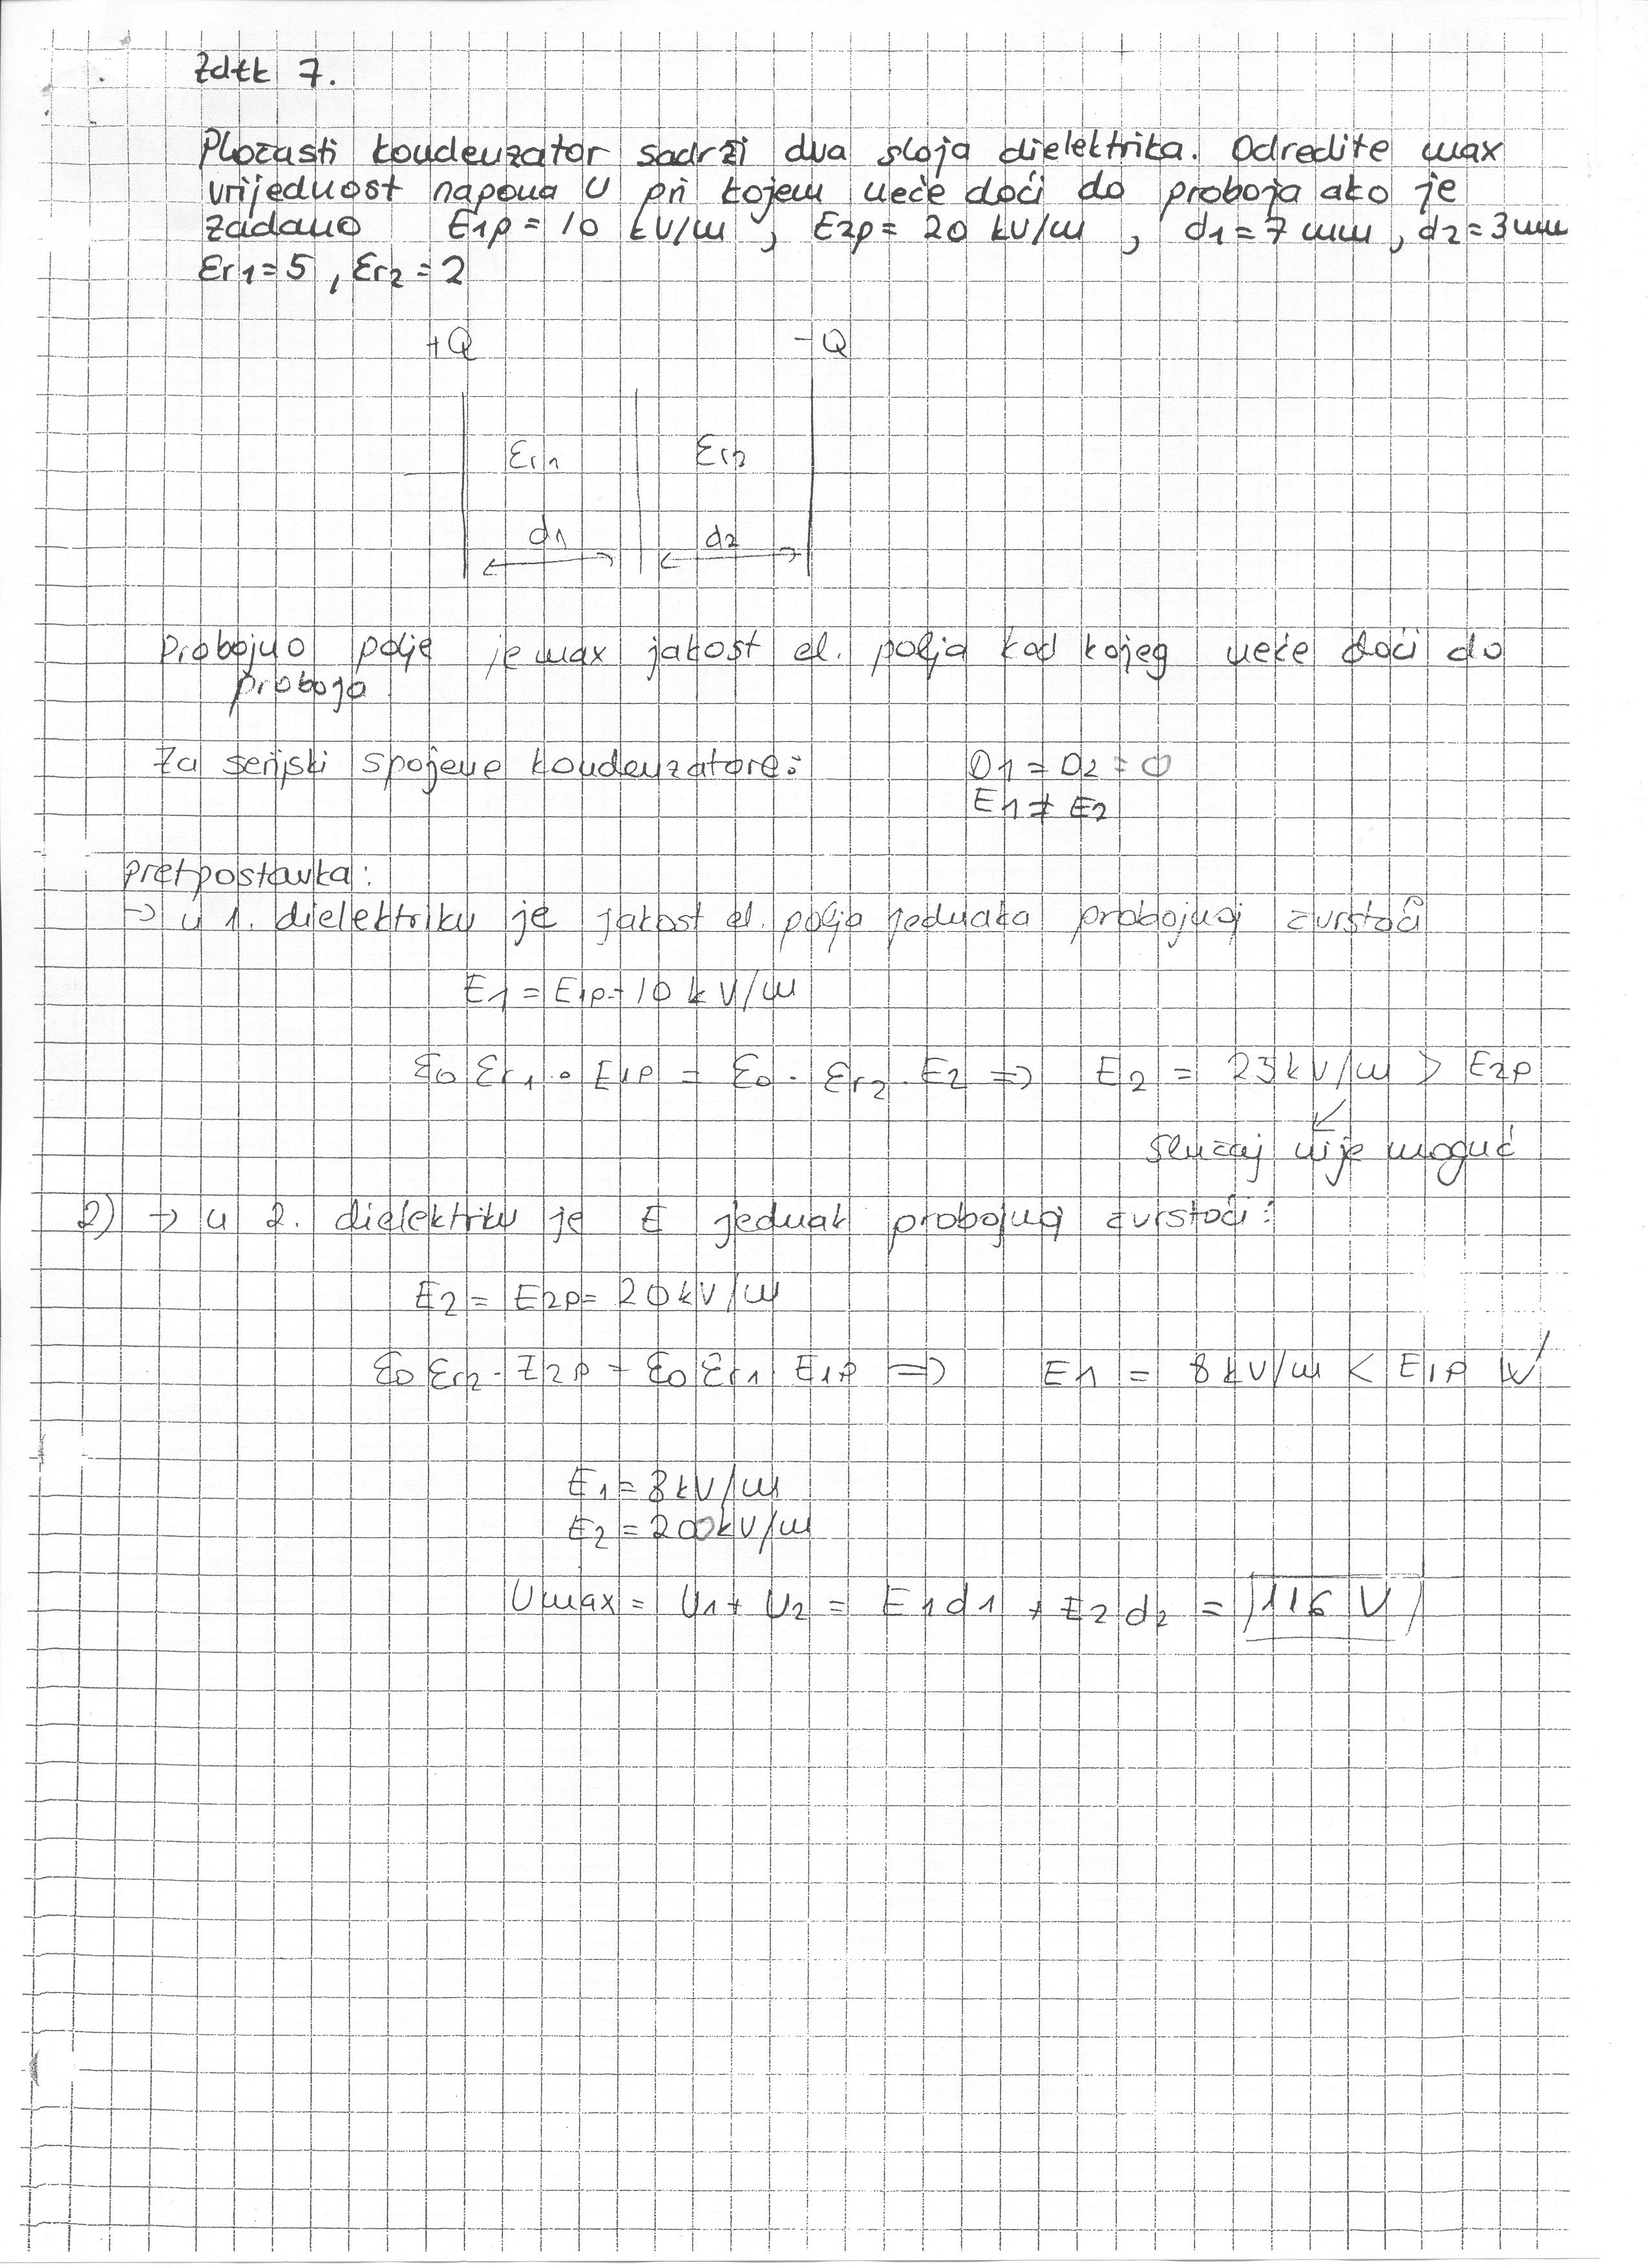 Zdtk 7.
Pločasti kondenzator sadrži dva sloja dielektrika. Odredite max
vrijednost napona U pri kojem neće doći do proboja ako je
zadano E1p = 10 kV/m , E2p = 20 kV/m , d1 = 7 mm , d2 = 3 mm
Er1 = 5 , Er2 = 2
+Q -Q
Er1 Er2
d1 d2
Probojno polje je max jakost el. polja kod kojeg neće doći do
proboja
Za serijski spojene kondenzatore:
D1 = D2 = 0
E1 ≠ E2
pretpostavka:
→ u 1. dielektriku je jakost el. polja jednaka probojnoj čvrstoći
E1 = E1p = 10 kV/m
ε0 εr1 • E1p = ε0 · εr2 · E2 => E2 = 25 kV/m > E2p
slučaj nije moguć
2) → u 2. dielektriku je E jednak probojnoj čvrstoći:
E2 = E2p = 20 kV/m
ε0 εr2 · E2p = ε0 εr1 E1p => E1 = 8 kV/m < E1p ✓
E1 = 8 kV/m
E2 = 200 kV/m
Umax = U1 + U2 = E1d1 + E2d2 = 116 V